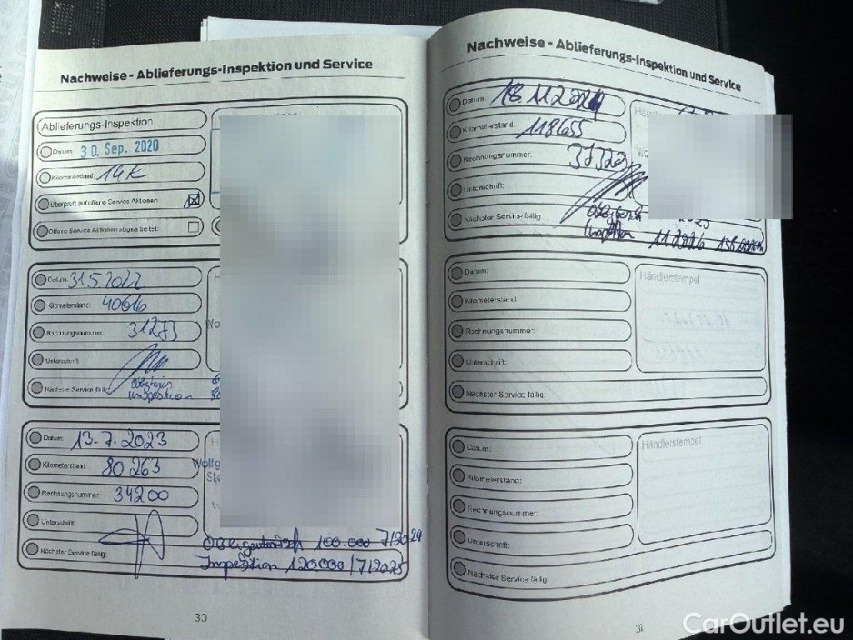 Nachweise - Ablieferungs-Inspektion und Service
Ablieferungs-Inspektion
Datum: 30. Sep. 2020
Kilometerstand: 14K
Überprüft auf offene Service Aktionen
Offene Service Aktionen abgearbeitet:
Datum: 31.5.2022
Kilometerstand:
Rechnungsnummer: 31273
Unterschrift:
Nächster Service fällig:
Inspektion
Datum: 13.7.2023
Kilometerstand: 80 263
Rechnungsnummer: 34200
Unterschrift:
Nächster Service fällig:
100.000 7/2024
Inspektion 120000/7/2025
30
Nachweise - Ablieferungs-Inspektion und Service
Datum: 18.11.2024
Kilometerstand: 118655
Rechnungsnummer:
Unterschrift:
Nächster Service fällig:
Datum:
Händlerstempel
Kilometerstand:
Rechnungsnummer:
Unterschrift:
Nächster Service fällig:
Datum:
Händlerstempel
Kilometerstand:
Rechnungsnummer:
Unterschrift:
Nächster Service fällig:
31
CarOutlet.eu